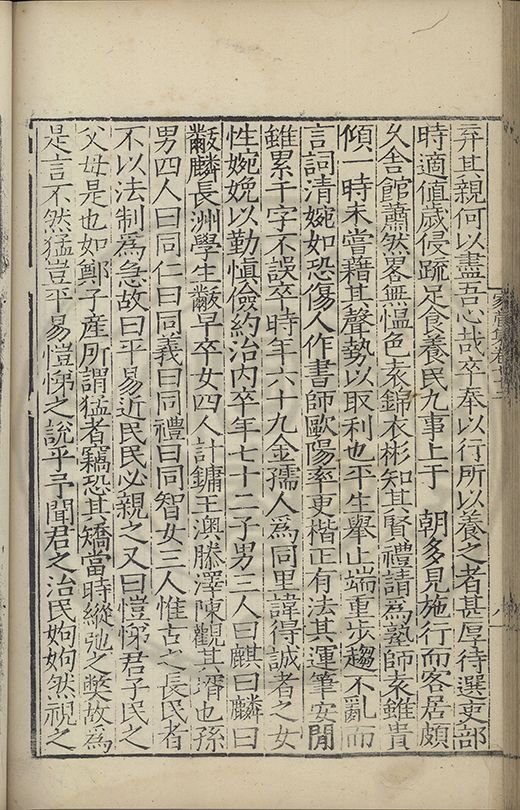 弃其親何以盡吾心哉卒奉以行所以養之者甚厚待選吏部
時適値歲侵疏足食養民九事上于　朝多見施行而客居頗
久舍館蕭然畧無慍色袁錦衣彬知其賢禮請為塾師袁雖貴
傾一時未嘗藉其聲勢以取利也平生舉止端重步趨不亂而
言詞清婉如恐傷人作書師歐陽率更楷正有法其運筆安閒
雖累千字不誤卒時年六十九金孺人為同里諱得誠者之女
性婉娩以勤愼儉約治内卒年七十二子男三人曰麒曰麟曰
麟長洲學生早卒女四人計鏞王澳滕澤陳觀其壻也孫
男四人曰同仁曰同義曰同禮曰同智女三人惟古之長民者
不以法制為急故曰平易近民民必親之又曰愷悌君子民之
父母是也如鄭子産所謂猛者竊恐其矯當時縱弛之獘故為
是言不然猛豈平易愷悌之說乎予聞君之治民姁姁然視之